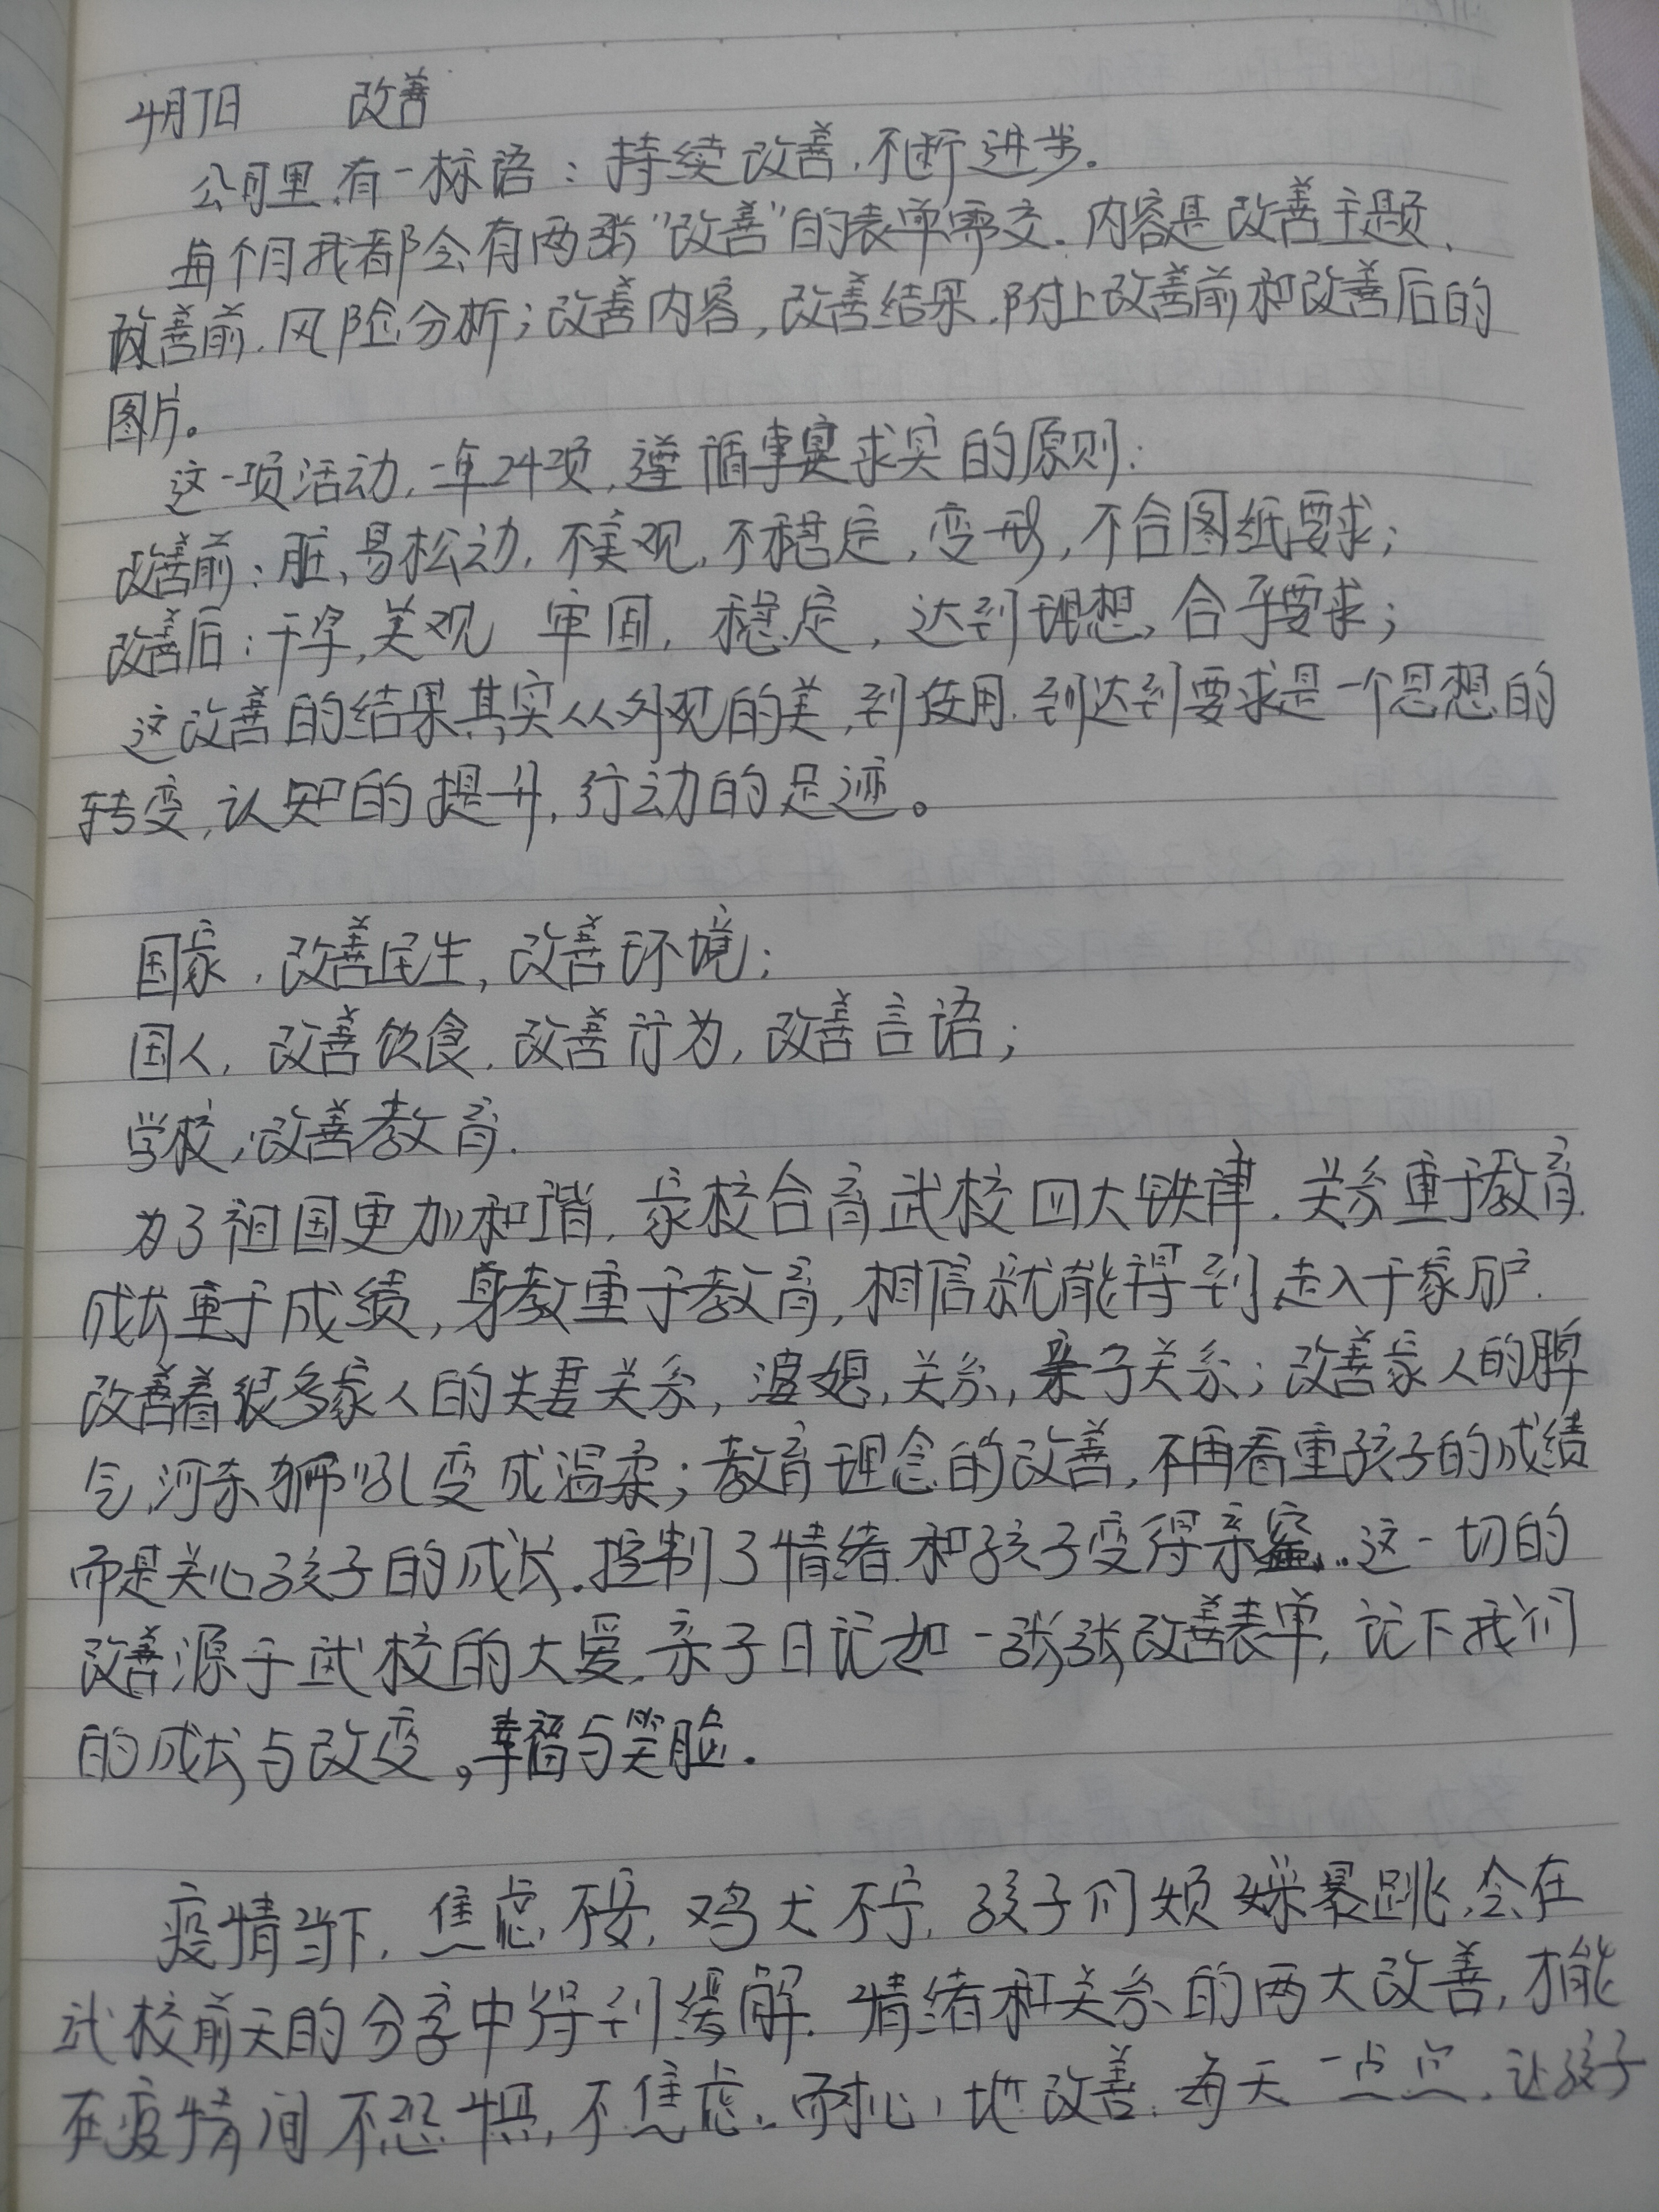 4月7日 改善
公司里有一标语：持续改善，不断进步。
每个月我都会有两张“改善”的表单需交．内容是改善主题、
改善前．风险分析；改善内容，改善结果．附上改善前和改善后的
图片。
这一项活动，一年24项，遵循事实求实的原则：
改善前：脏，易松动，不美观，不稳定，变形，不合图纸要求；
改善后：干净，美观 牢固，稳定，达到理想，合乎要求；
这改善的结果其实从外观的美，到使用．到达到要求是一个思想的
转变，认知的提升，行动的足迹。
国家，改善民生，改善环境；
国人，改善饮食．改善行为，改善言语；
学校，改善教育．
为了祖国更加和谐，家校合育武校四大铁律．关系重于教育．
成长重于成绩，身教重于教育，相信就能得到．走入千家万户．
改善着很多家人的夫妻关系，婆媳，关系，亲子关系；改善家人的脾
气，河东狮吼变成温柔；教育理念的改善，不再看重孩子的成绩
而是关心孩子的成长．控制了情绪．和孩子变得亲蜜...这一切的
改善源于武校的大爱．亲子日记如一张张改善表单，记下我们
的成长与改变，幸福与笑脸．
疫情当下，焦虑不安，鸡犬不宁，孩子们烦躁暴跳，会在
武校前天的分享中得到缓解．情绪和关系的两大改善，才能
在疫情间不恐惧，不焦虑．耐心地改善．每天一点点．让孩子